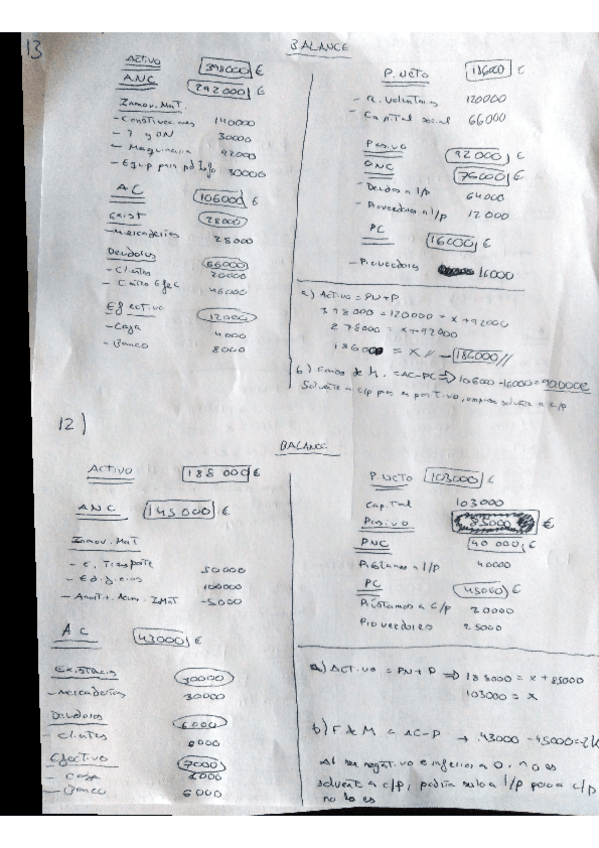 13
BALANCE
Activo 398000 €
ANC 292000 €
Inmov. Mat.
- Construcciones 140000
- T y BN 30000
- Maquinaria 92000
- Equip para pd Info 30000
AC 106000 €
Exist 28000
- Mercaderías 28000
Deudores 66000
- Clientes 20000
- Clientes Efec 46000
Efectivo 12000
- Caja 4000
- Banco 8000
P. Neto 186000 €
- R. Voluntarias 120000
- Capital social 66000
Pasivo 92000 €
PNC 76000 €
- Deudas a l/p 64000
- Proveedores a l/p 12000
PC 16000 €
- Proveedores 16000
a) Activo = PN + P
398000 = 120000 + x + 92000
278000 = x + 92000
186000 = x // - 186000 //
b) Fondo de M. = AC - PC => 106000 - 16000 = 90.000€
Solvente a c/p pues es positivo, empresa solvente a c/p
12)
BALANCE
Activo 188 000 €
ANC 145000 €
Inmov. Mat
- E. Transporte 50000
- Edificios 100000
- Amt. Acum. I Mat -5000
AC 43000 €
Existencias 30000
- Mercaderías 30000
Deudores 6000
- Clientes 6000
Efectivo 7000
- Caja 1000
- Banco 6000
P Neto 103000 €
Capital 103000
Pasivo 85000 €
PNC 40 000 €
Préstamos a l/p 40000
PC 45000 €
Préstamos a c/p 20000
Proveedores 25000
a) Activo = PN + P => 188000 = x + 85000
103000 = x
b) F de M = AC - P -> 43000 - 45000 = -2K
Al ser negativo e inferior a 0, no es
solvente a c/p, podría serlo a l/p pero a c/p
no lo es